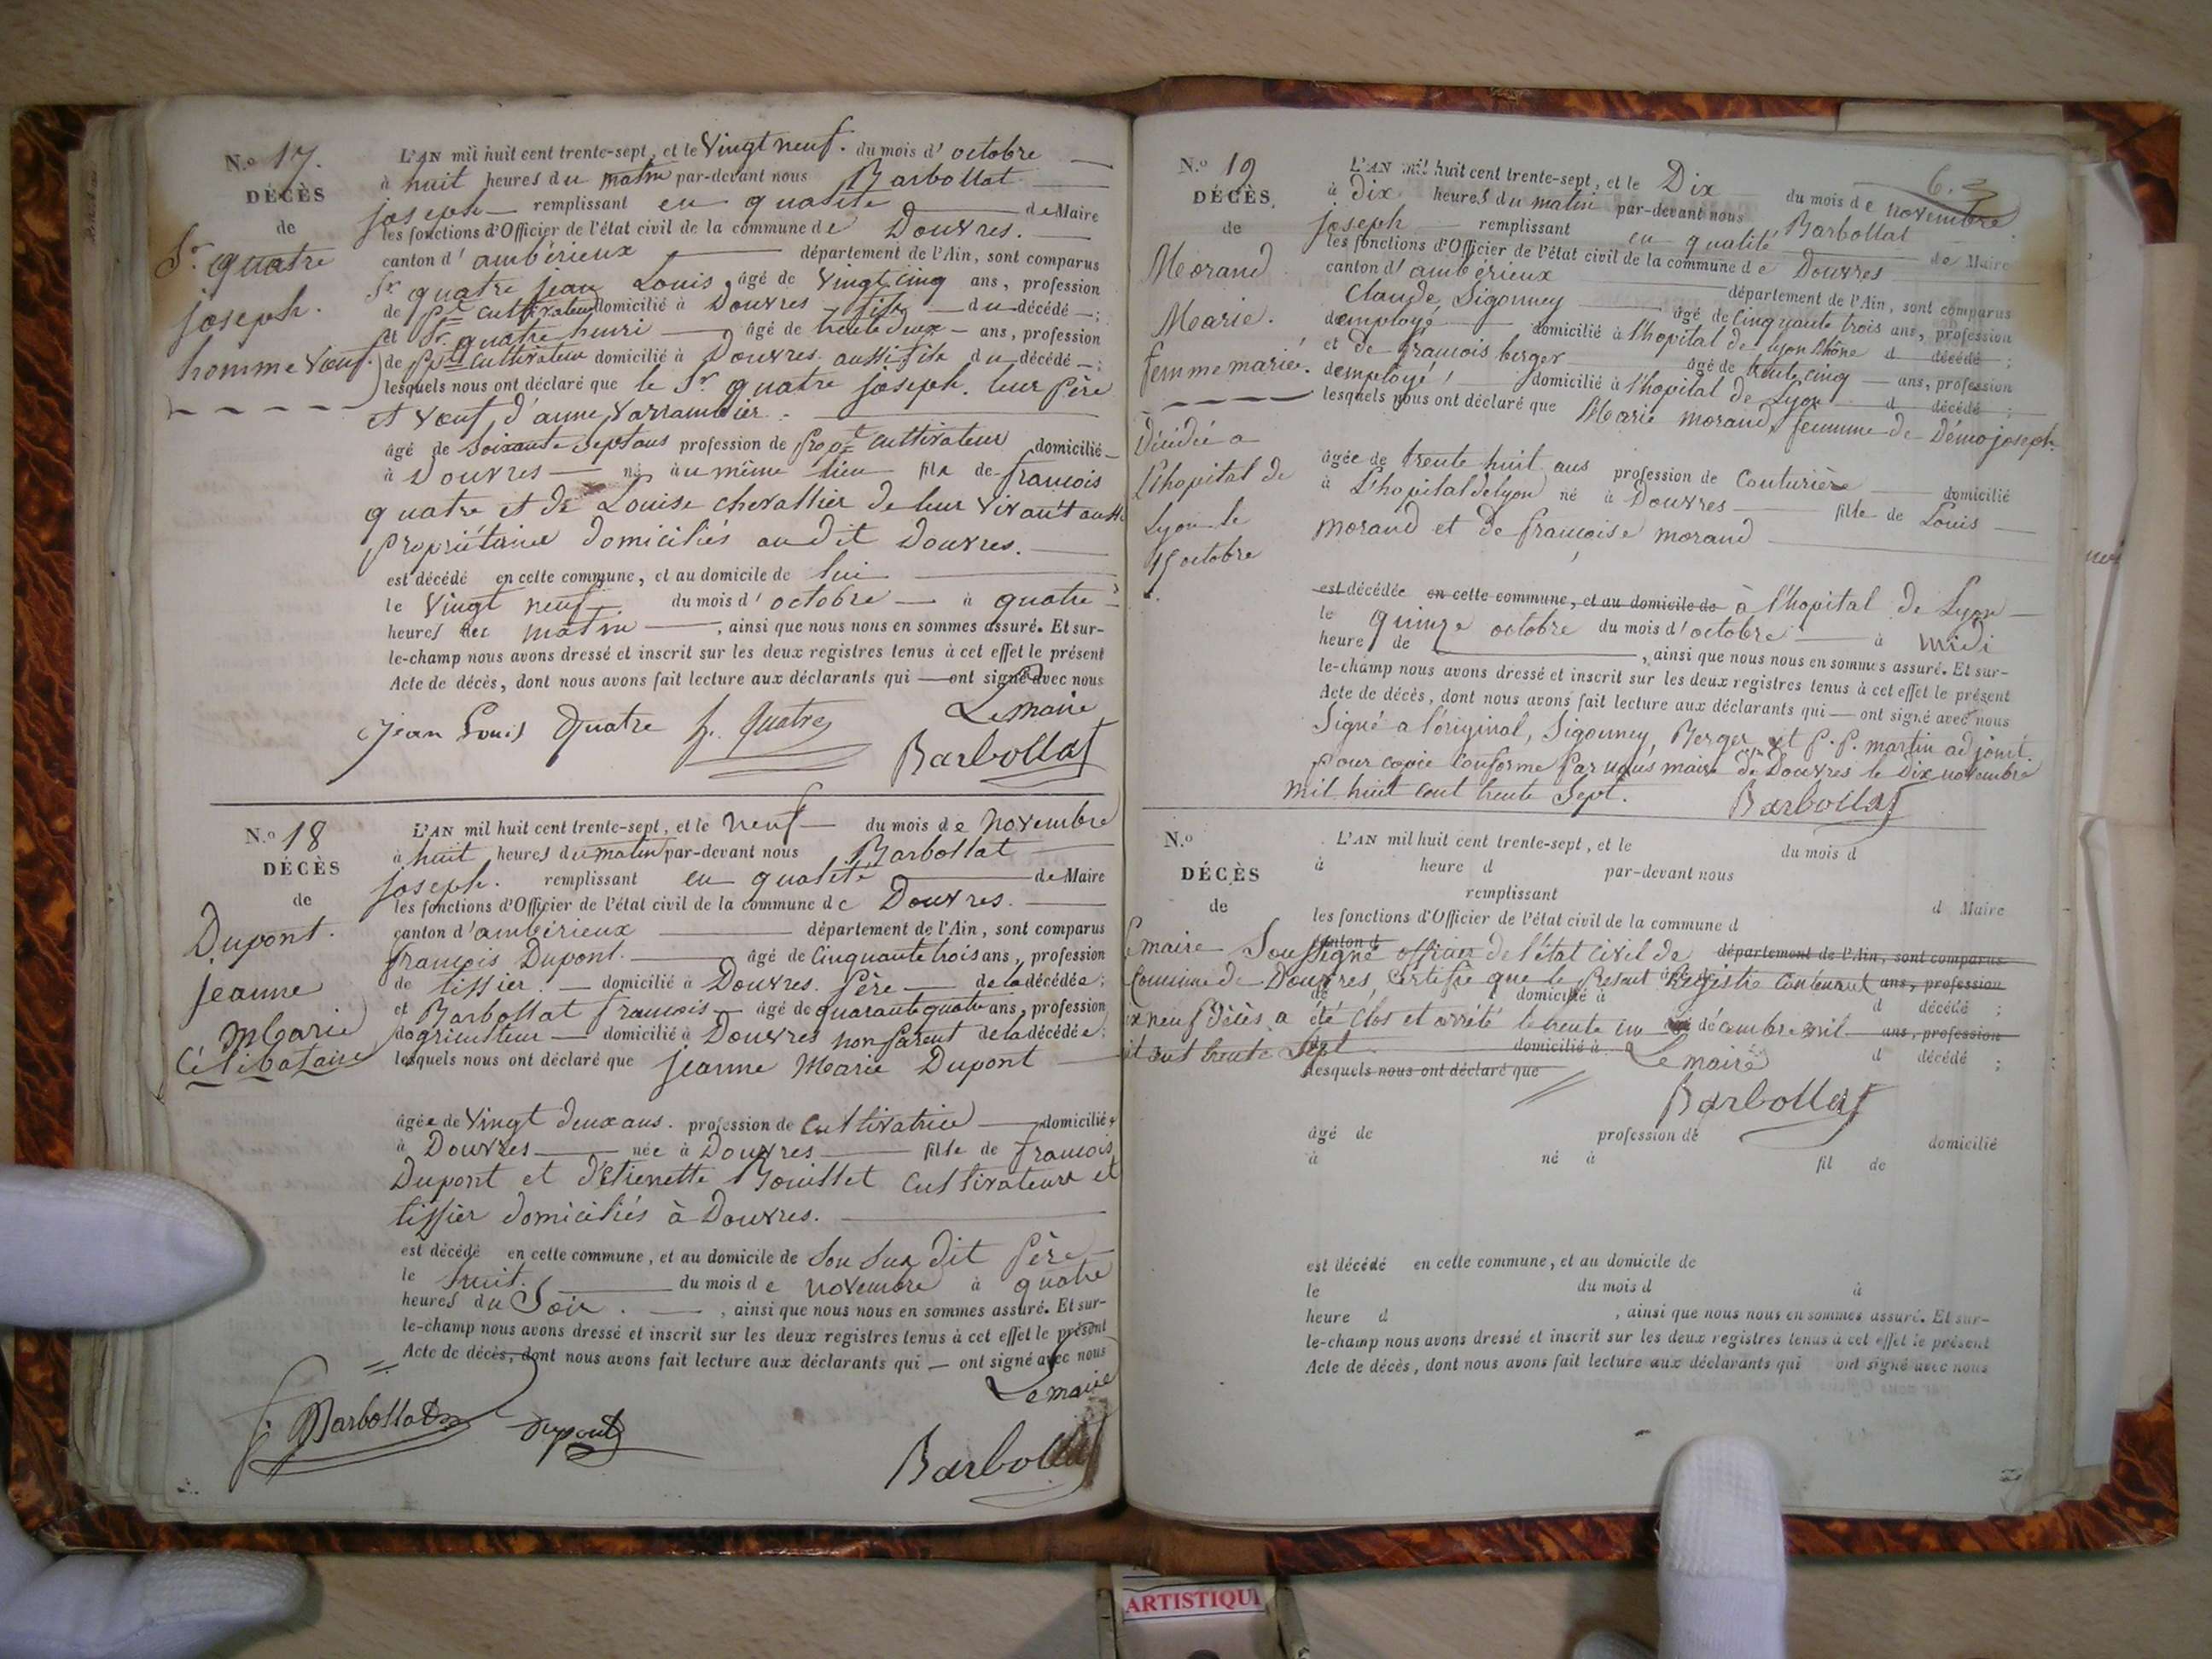 N.o 17.
DÉCÈS
de
Sr quatre
joseph.
homme veuf.
L'AN mil huit cent trente-sept, et le Vingt neuf. du mois d' octobre
à huit heures du matin par-devant nous Barbollat
joseph remplissant en qualité de Maire
les fonctions d'Officier de l'état civil de la commune de Douvres.
canton d' ambérieux département de l'Ain, sont comparus
Sr quatre jean Louis, âgé de Vingt cinq ans, profession
de pre cultivateur domicilié à Douvres fils du décédé ;
et Sr quatre henri âgé de trente deux ans, profession
de pre cultivateur domicilié à Douvres aussi fils du décédé ;
lesquels nous ont déclaré que le Sr quatre joseph. leur père
et veuf d'anne Varrambier.
âgé de soixante sept ans profession de prop.re cultivateur domicilié
à Douvres né au même lieu fils de francois
quatre et de Louise chevallier de leur vivant aussi
propriétaires domiciliés au dit Douvres.
est décédé en cette commune, et au domicile de lui
le Vingt neuf. du mois d' octobre à quatre
heures du matin, ainsi que nous nous en sommes assuré. Et sur-
le-champ nous avons dressé et inscrit sur les deux registres tenus à cet effet le présent
Acte de décès, dont nous avons fait lecture aux déclarants qui ont signé avec nous
Le maire
jean Louis Quatre h. quatre
Barbollat
N.o 18
DÉCÈS
de
Dupont.
jeanne
Marie
Célibataire
L'AN mil huit cent trente-sept, et le neuf du mois de novembre
à huit heures du matin par-devant nous Barbollat
joseph. remplissant en qualité de Maire
les fonctions d'Officier de l'état civil de la commune de Douvres.
canton d'ambérieux département de l'Ain, sont comparus
francois Dupont. âgé de cinquante trois ans, profession
de tissier. domicilié à Douvres. père de la décédée ;
et Barbollat francois âgé de quarante quatre ans, profession
dagriculteur domicilié à Douvres non parent de la décédée ;
lesquels nous ont déclaré que jeanne Marie Dupont
âgée de Vingt deux ans. profession de cultivatrice domiciliée
à Douvres née à Douvres fille de francois
Dupont et d'Etienette Bouillet cultivateurs et
tissier domiciliés à Douvres.
est décédé en cette commune, et au domicile de son sus dit père
le huit. du mois de novembre à quatre
heures du Soir., ainsi que nous nous en sommes assuré. Et sur-
le-champ nous avons dressé et inscrit sur les deux registres tenus à cet effet le présent
Acte de décès, dont nous avons fait lecture aux déclarants qui ont signé avec nous
Le maire
f. Barbollat Dupont
Barbollat
6.
N.o 19
DÉCÈS
de
Morand
Marie.
femme mariée.
Décédée a
L'hopital de
Lyon le
15 octobre
L'AN mil huit cent trente-sept, et le Dix du mois de novembre
à Dix heures du matin par-devant nous Barbollat
joseph remplissant en qualité de Maire
les fonctions d'Officier de l'état civil de la commune de Douvres
canton d' ambérieux département de l'Ain, sont comparus
Claude Sigourney âgé de Cinquante trois ans, profession
demployé domicilié à l'hopital de Lyon Rhône d décédé ;
et de francois berger âgé de trente cinq ans, profession
demployé domicilié à l'hopital de Lyon d décédé ;
lesquels nous ont déclaré que Marie morand, femme de Démo joseph.
âgée de trente huit ans profession de Couturière domicilié
à L'hopital de lyon né à Douvres fille de Louis
morand et de francoise morand
est décédée en cette commune, et au domicile de à l'hopital de Lyon
le quinze octobre du mois d'octobre à midi
heure de, ainsi que nous nous en sommes assuré. Et sur-
le-champ nous avons dressé et inscrit sur les deux registres tenus à cet effet le présent
Acte de décès, dont nous avons fait lecture aux déclarants qui ont signé avec nous
Signé a l'original, Sigourney, Berger et P. P. martin adjoint.
pour copie conforme par nous maire de Douvres le Dix novembre
mil huit cent trente Sept. Barbollat
N.o
DÉCÈS
de
L'AN mil huit cent trente-sept, et le du mois d
à heure d par-devant nous
remplissant d Maire
les fonctions d'Officier de l'état civil de la commune d
canton d département de l'Ain, sont comparus
maire Soussigné officier de l'état civil de
Commune de Douvres, Certifie que le present Registre Contenant
âgé de ans, profession
de domicilié à d décédé ;
ix neuf Décès a été clos et arrêté le trente un décembre mil
ans, profession
it cent trente Sept
domicilié à d décédé ;
Le maire
lesquels nous ont déclaré que
Barbollat
âgé de profession de domicilié
à né à fil de
est décédé en cette commune, et au domicile de
le du mois d à
heure d, ainsi que nous nous en sommes assuré. Et sur-
le-champ nous avons dressé et inscrit sur les deux registres tenus à cet effet le présent
Acte de décès, dont nous avons fait lecture aux déclarants qui ont signé avec nous
ARTISTIQU